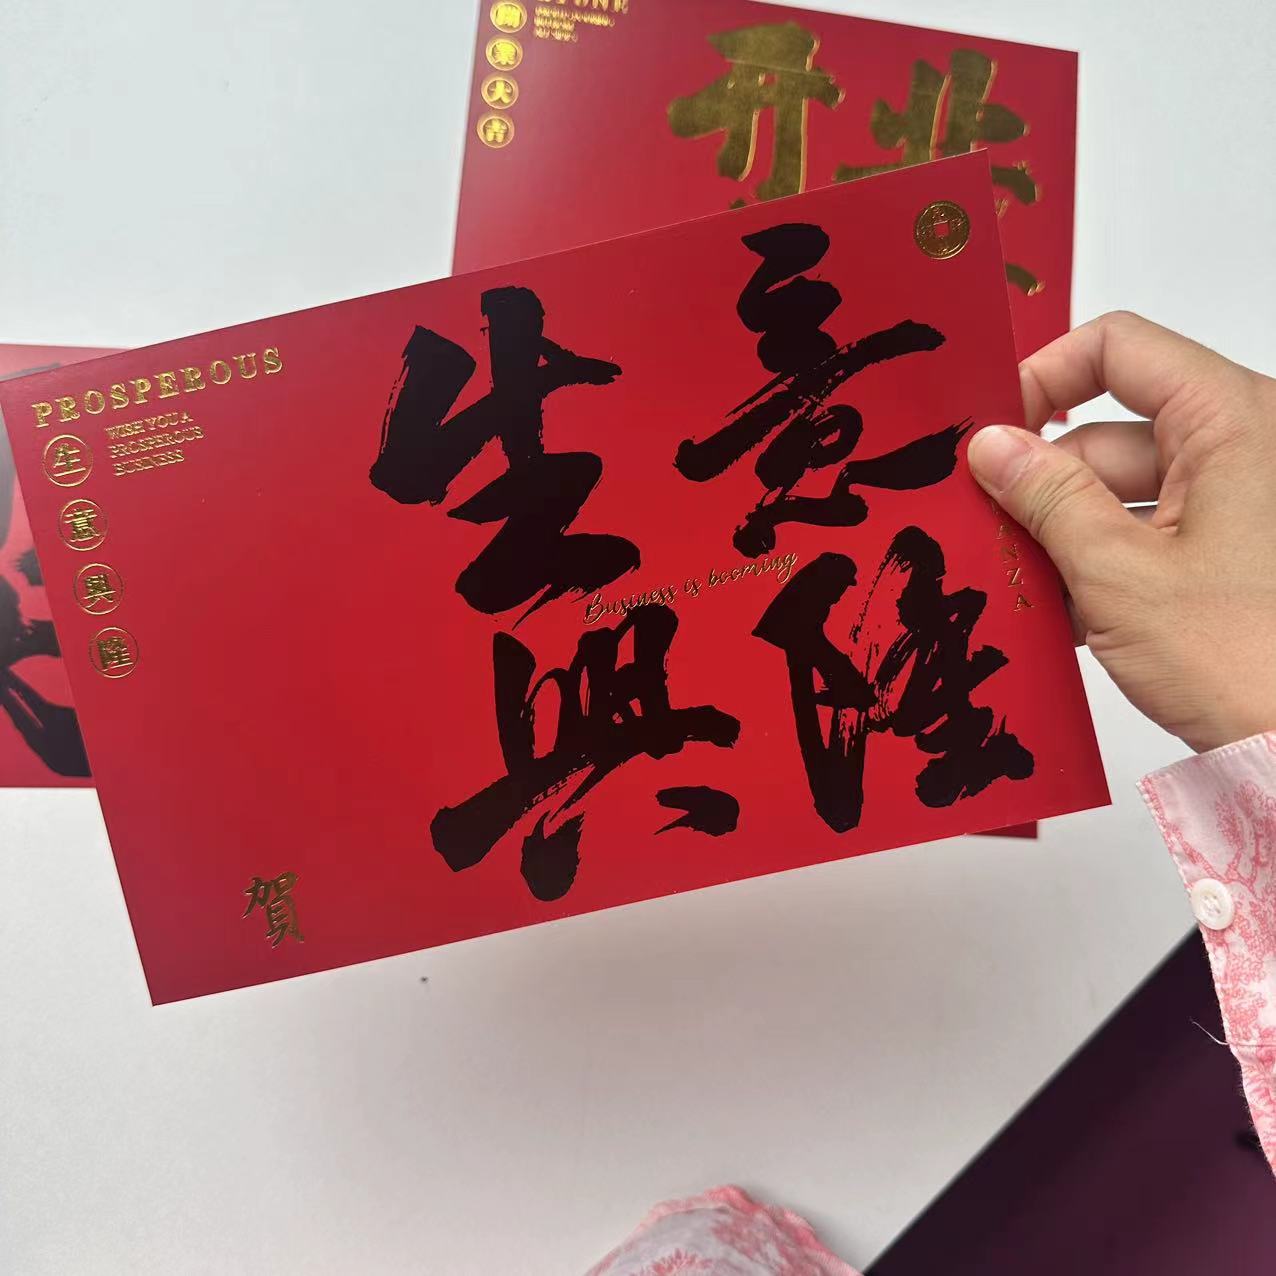 開
業
大
吉
开业
PROSPEROUS
WISH YOU A
PROSPEROUS
BUSINESS
生
意
興
隆
生意
Business is booming
興隆
賀